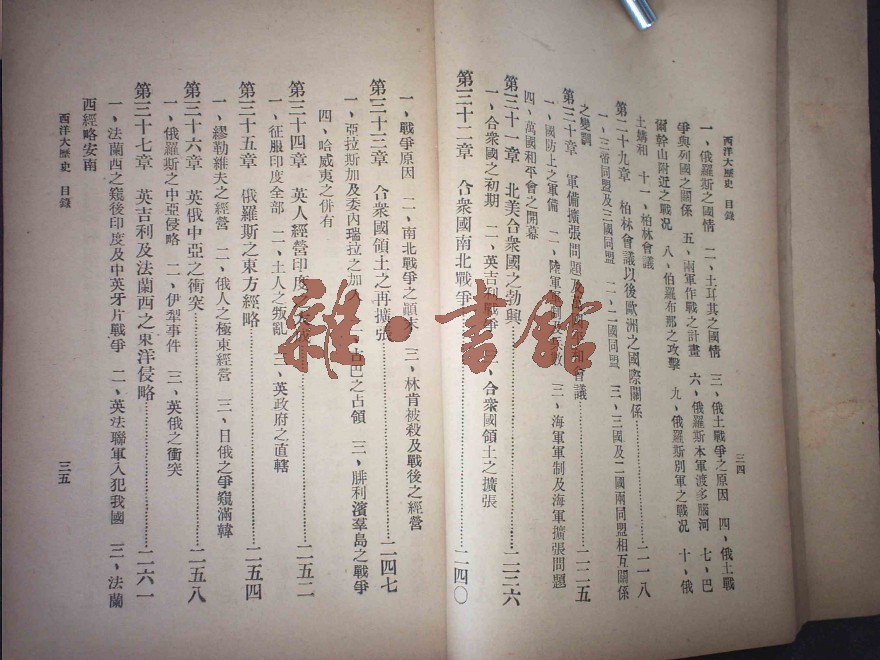 西洋大歷史 目錄 三四
一、俄羅斯之國情 二、土耳其之國情 三、俄土戰爭之原因 四、俄土戰
爭與列國之關係 五、兩軍作戰之計畫 六、俄羅斯本軍渡多腦河 七、巴
爾幹山附近之戰況 八、伯羅布那之攻擊 九、俄羅斯別軍之戰况 十、俄
土媾和 十一、柏林會議
第二十九章 柏林會議以後歐洲之國際關係……二一八
一、三帝同盟及三國同盟 二、二國同盟 三、三國及二國兩同盟相互關係
之變調
第三十章 軍備擴張問題及 和會議……二二五
一、國防上之軍備 二、陸軍軍制及 三、海軍軍制及海軍擴張問題
四、萬國和平會之開幕
第三十一章 北美合衆國之勃興……二三六
一、合衆國之初期 二、英吉利戰爭 三、合衆國領土之擴張
第三十二章 合衆國南北戰爭……二四〇
一、戰爭原因 二、南北戰爭之顛末 三、林肯被殺及戰後之經營
第三十三章 合衆國領土之再擴張……二四七
一、亞拉斯加及委內瑞拉之加入 二、古巴之占領 三、腓利濱羣島之戰爭
四、哈威夷之併有
第三十四章 英人經營印度之 ……二五二
一、征服印度全部 二、土人之叛亂 三、英政府之直轄
第三十五章 俄羅斯之東方經略……二五四
一、繆勒維夫之經營 二、俄人之極東經營 三、日俄之爭窺滿韓
第三十六章 英俄中亞之衝突……二五八
一、俄羅斯之中亞侵略 二、伊犁事件 三、英俄之衝突
第三十七章 英吉利及法蘭西之東洋侵略……二六一
一、法蘭西之窺後印度及中英牙片戰爭 二、英法聯軍入犯我國 三、法蘭
西經略安南
西洋大歷史 目錄 三五
雜·書館